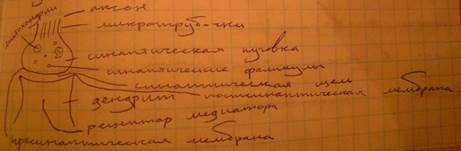 митохондрии
аксон
микротрубочки
синаптическая пуговка
синаптические
синаптическая щель
дендрит постсинаптическая мембрана
рецептор медиатора
пресинаптическая мембрана